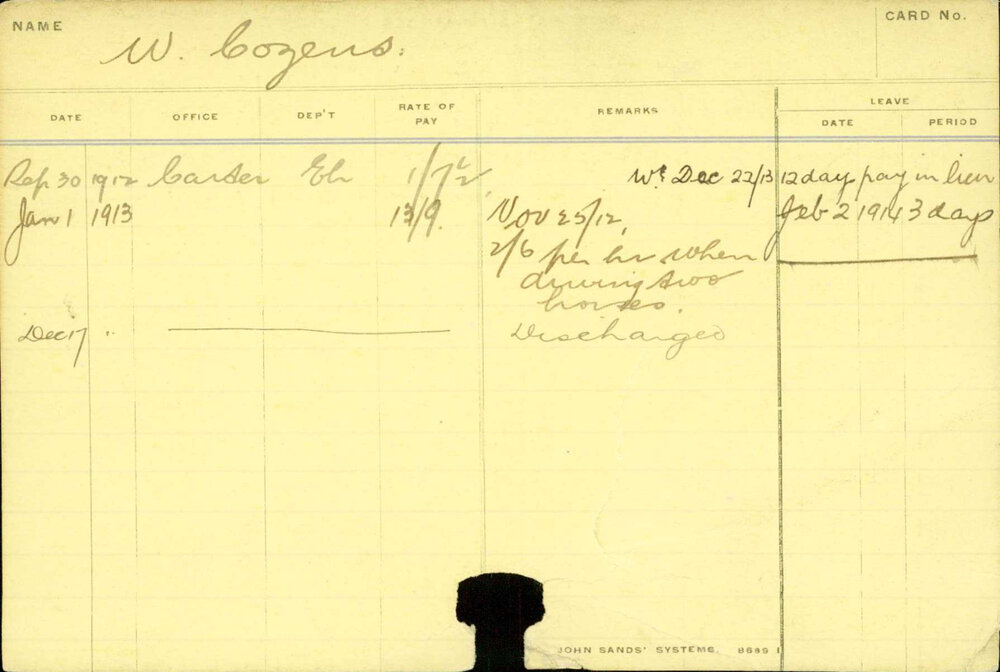 NAME
W. Cozens.
CARD No.
DATE OFFICE DEP'T RATE OF PAY REMARKS LEAVE
DATE PERIOD
Sep 30 1912 Carter Eh 1/7½ Wk Dec 22/13 12 day pay in lieu
Jan 1 1913 13/9. Nov 25/12, Feb 2 1914 3 days
2/6 per hr when
driving two
horses.
Dec 17 " Discharged
JOHN SANDS' SYSTEMS. 8689